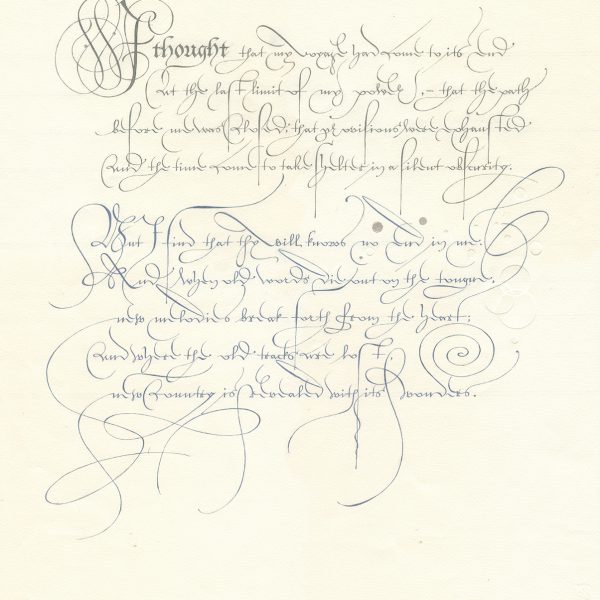 I thought that my voyage had come to its end
at the last limit of my power, – that the path
before me was closed, that provisions were exhausted
and the time come to take shelter in a silent obscurity.
But I find that thy will knows no end in me.
And when old words die out on the tongue,
new melodies break forth from the heart;
and where the old tracks are lost,
new country is revealed with its wonders.